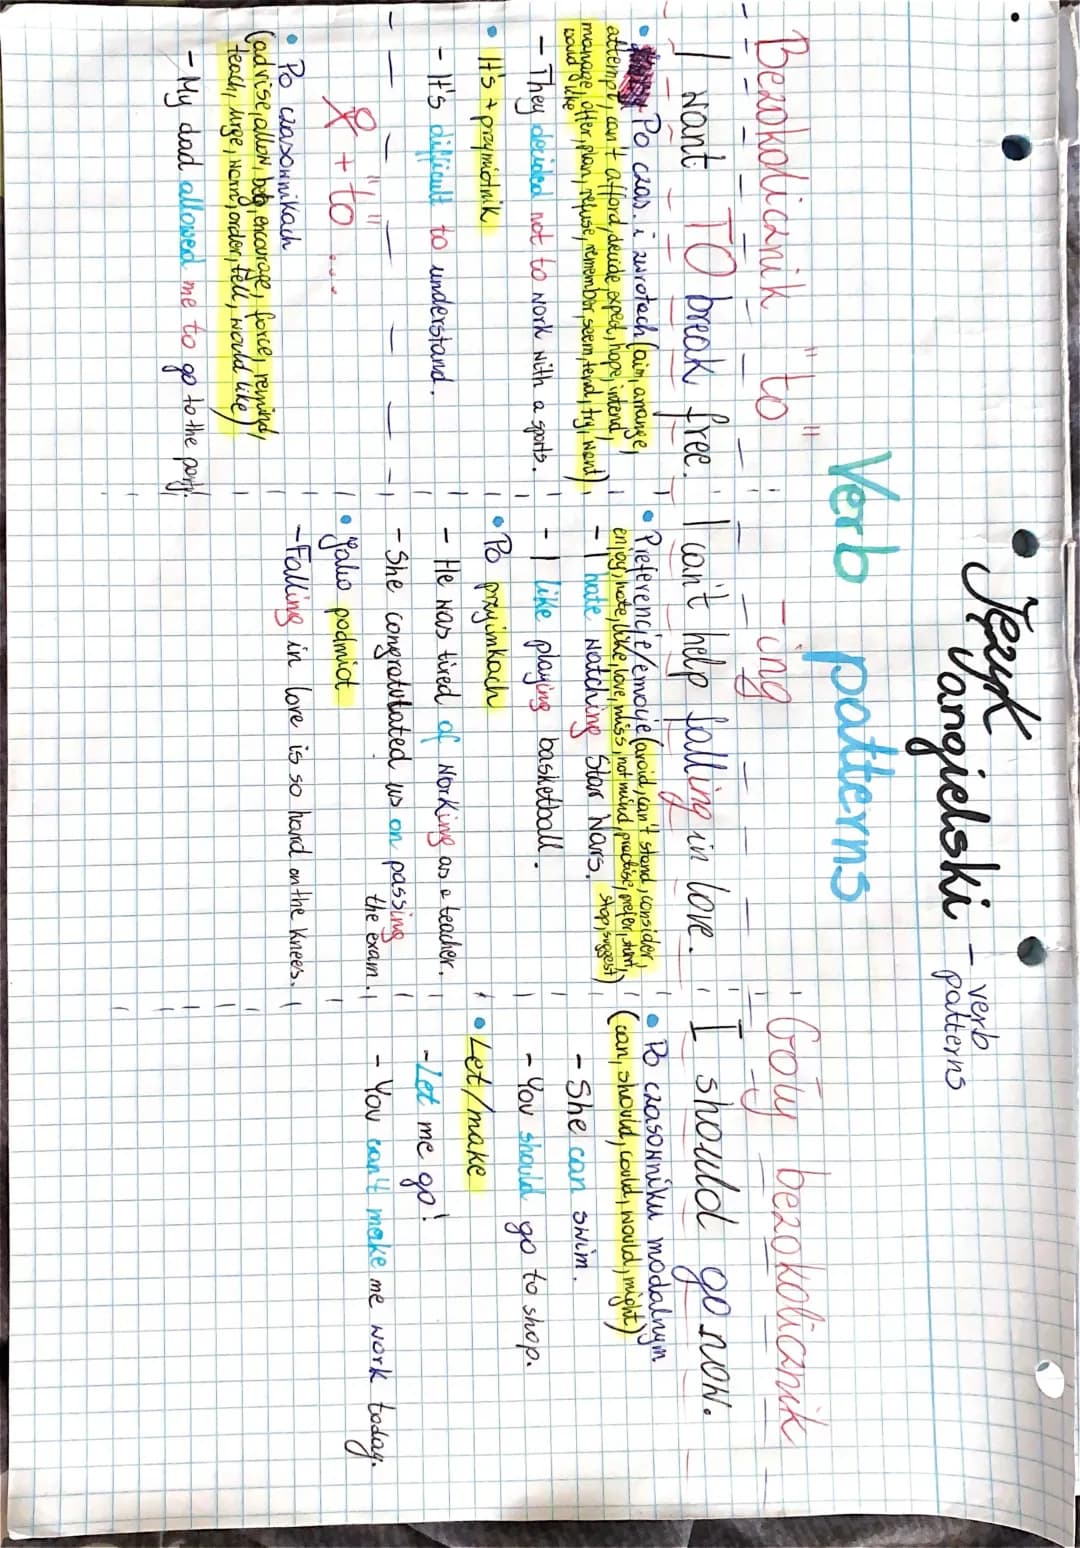 Język
angielski - verb
patterns
Verb patterns
Bezokolicznik "to"
I want TO break free.
• Po czas. i zwrotach (aim, arrange,
attempt, can't afford, decide, expect, hope, intend,
manage, offer, plan, refuse, remember, seem, tend, try, want)
would like
- They decided not to work with a sports.
• It's + przymiotnik
- It's difficult to understand.
+ "to"...
• Po czasownikach
(advise, allow, beg, encourage, force, remind,
teach, urge, warn, order, tell, would like)
- My dad allowed me to go to the party.
-ing
I can't help falling in love.
• Preferencje/emocje (avoid, can't stand, consider,
enjoy, hate, like, love, miss, not mind, practise, prefer, start,
stop, suggest)
- I hate watching Star Wars.
- I like playing basketball.
• Po przyimkach
- He was tired of working as a teacher.
- She congratulated us on passing
the exam.
• Jako podmiot
- Falling in love is so hard on the knees.
Goły bezokolicznik
I should go now.
• Po czasowniku modalnym
(can, should, could, would, might)
- She can swim.
- You should go to shop.
• Let/make
- Let me go!
- You can't make me work today.